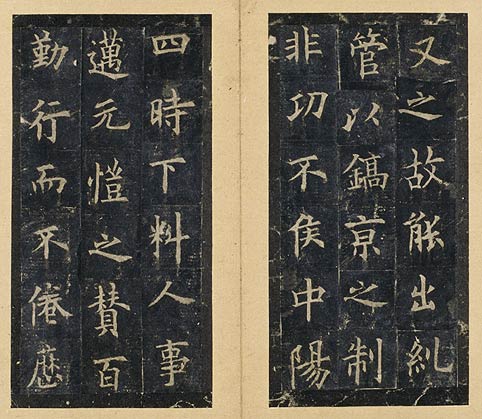 又之故能出糺
管以鎬京之制
非功不侯中陽
四時下料人事
邁元愷之賛百
勤行而不倦歴